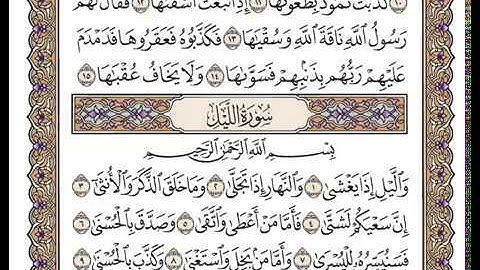 ١٠ كَذَّبَتْ ثَمُودُ بِطَغْوَىٰهَا ١١ إِذِ ٱنۢبَعَثَ أَشْقَىٰهَا ١٢ فَقَالَ لَهُمْ
رَسُولُ ٱللَّهِ نَاقَةَ ٱللَّهِ وَسُقْيَٰهَا ١٣ فَكَذَّبُوهُ فَعَقَرُوهَا فَدَمْدَمَ
عَلَيْهِمْ رَبُّهُم بِذَنۢبِهِمْ فَسَوَّىٰهَا ١٤ وَلَا يَخَافُ عُقْبَٰهَا ١٥
سُورَةُ اللَّيْلِ
بِسْمِ ٱللَّهِ ٱلرَّحْمَٰنِ ٱلرَّحِيمِ
وَٱلَّيْلِ إِذَا يَغْشَىٰ ١ وَٱلنَّهَارِ إِذَا تَجَلَّىٰ ٢ وَمَا خَلَقَ ٱلذَّكَرَ وَٱلْأُنثَىٰٓ ٣
إِنَّ سَعْيَكُمْ لَشَتَّىٰ ٤ فَأَمَّا مَنْ أَعْطَىٰ وَٱتَّقَىٰ ٥ وَصَدَّقَ بِٱلْحُسْنَىٰ ٦
فَسَنُيَسِّرُهُۥ لِلْيُسْرَىٰ ٧ وَأَمَّا مَنۢ بَخِلَ وَٱسْتَغْنَىٰ ٨ وَكَذَّبَ بِٱلْحُسْنَىٰ ٩